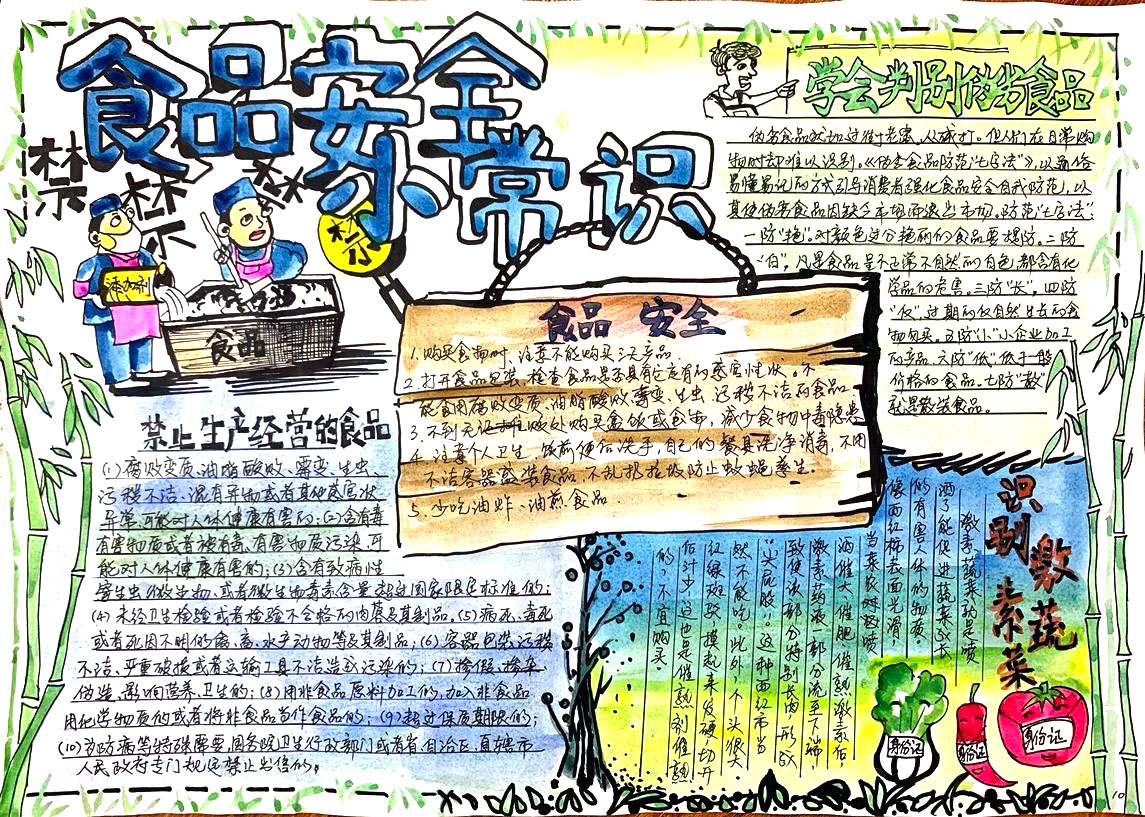 食品安全
常识
禁
禁
禁
添加剂
食品
学会判别伪劣食品
伪劣食品犹如过街老鼠,人人喊打。但人们在日常购
物时却难以识别。《伪劣食品防范"七字法"》,以通俗
易懂易记的方式引导消费者强化食品安全自我防范,以
其使伪劣食品因缺乏市场而退出市场。防范"七字法":
一防"艳"。对颜色过分艳丽的食品要提防。二防
"白",凡是食品呈不正常不自然的白色,都含有化
学品的危害。三防"长",四防
"反",过期的反自然生长的食
物勿买。五防"小"小企业加工
的产品。六防"低"低于一般
价格的食品。七防"散"
就是散装食品。
食品 安全
1.购买食物时,注意不能购买三无产品。
2.打开食品包装,检查食品是否具有它应有的感官性状。不
能食用腐败变质、油脂酸败、霉变、生虫、污秽不洁的食品
3.不到无证摊贩处购买盒饭或食物,减少食物中毒隐患
4.注意个人卫生,饭前便后洗手,自己的餐具洗净消毒,不用
不洁容器盛装食品,不乱扔垃圾防止蚊蝇孳生。
5.少吃油炸、油煎食品.
禁止生产经营的食品
(1)腐败变质、油脂酸败、霉变、生虫、
污秽不洁、混有异物或者其他感官状
异常,可能对人体健康有害的;(2)含有毒
有害物质或者被有毒、有害物质污染,可
能对人体健康有害的;(3)含有致病性
寄生虫、微生物,或者微生物毒素含量超过国家限定标准的;
(4)未经卫生检验或者检验不合格的肉类及其制品。(5)病死、毒死
或者死因不明的禽、畜、水产动物等及其制品;(6)容器包装污秽
不洁、严重破损或者运输工具不洁造成污染的;(7)掺假、掺杂、
伪造,影响营养、卫生的;(8)用非食品原料加工的,加入非食品
用化学物质的或者将非食品当作食品的;(9)超过保质期限的;
(10)为防病等特殊需要,国务院卫生行政部门或者省、自治区、直辖市
人民政府专门规定禁止出售的。
识别激素蔬菜
激素蔬菜就是喷
洒了能促进蔬菜成长
的有害人体的物质。
像西红柿表面光滑,
当菜农对其喷
洒催大、催肥、催熟激素后
激素药液一部分流至下端
致使该部分特别长肉,形成
"尖屁股"。这种西红柿当
然不能吃。此外,个头很大
红绿斑驳、摸起来很硬、切开
后汁少,这也是催熟剂催熟
的,不宜购买
身份证
身份证
身份证
10